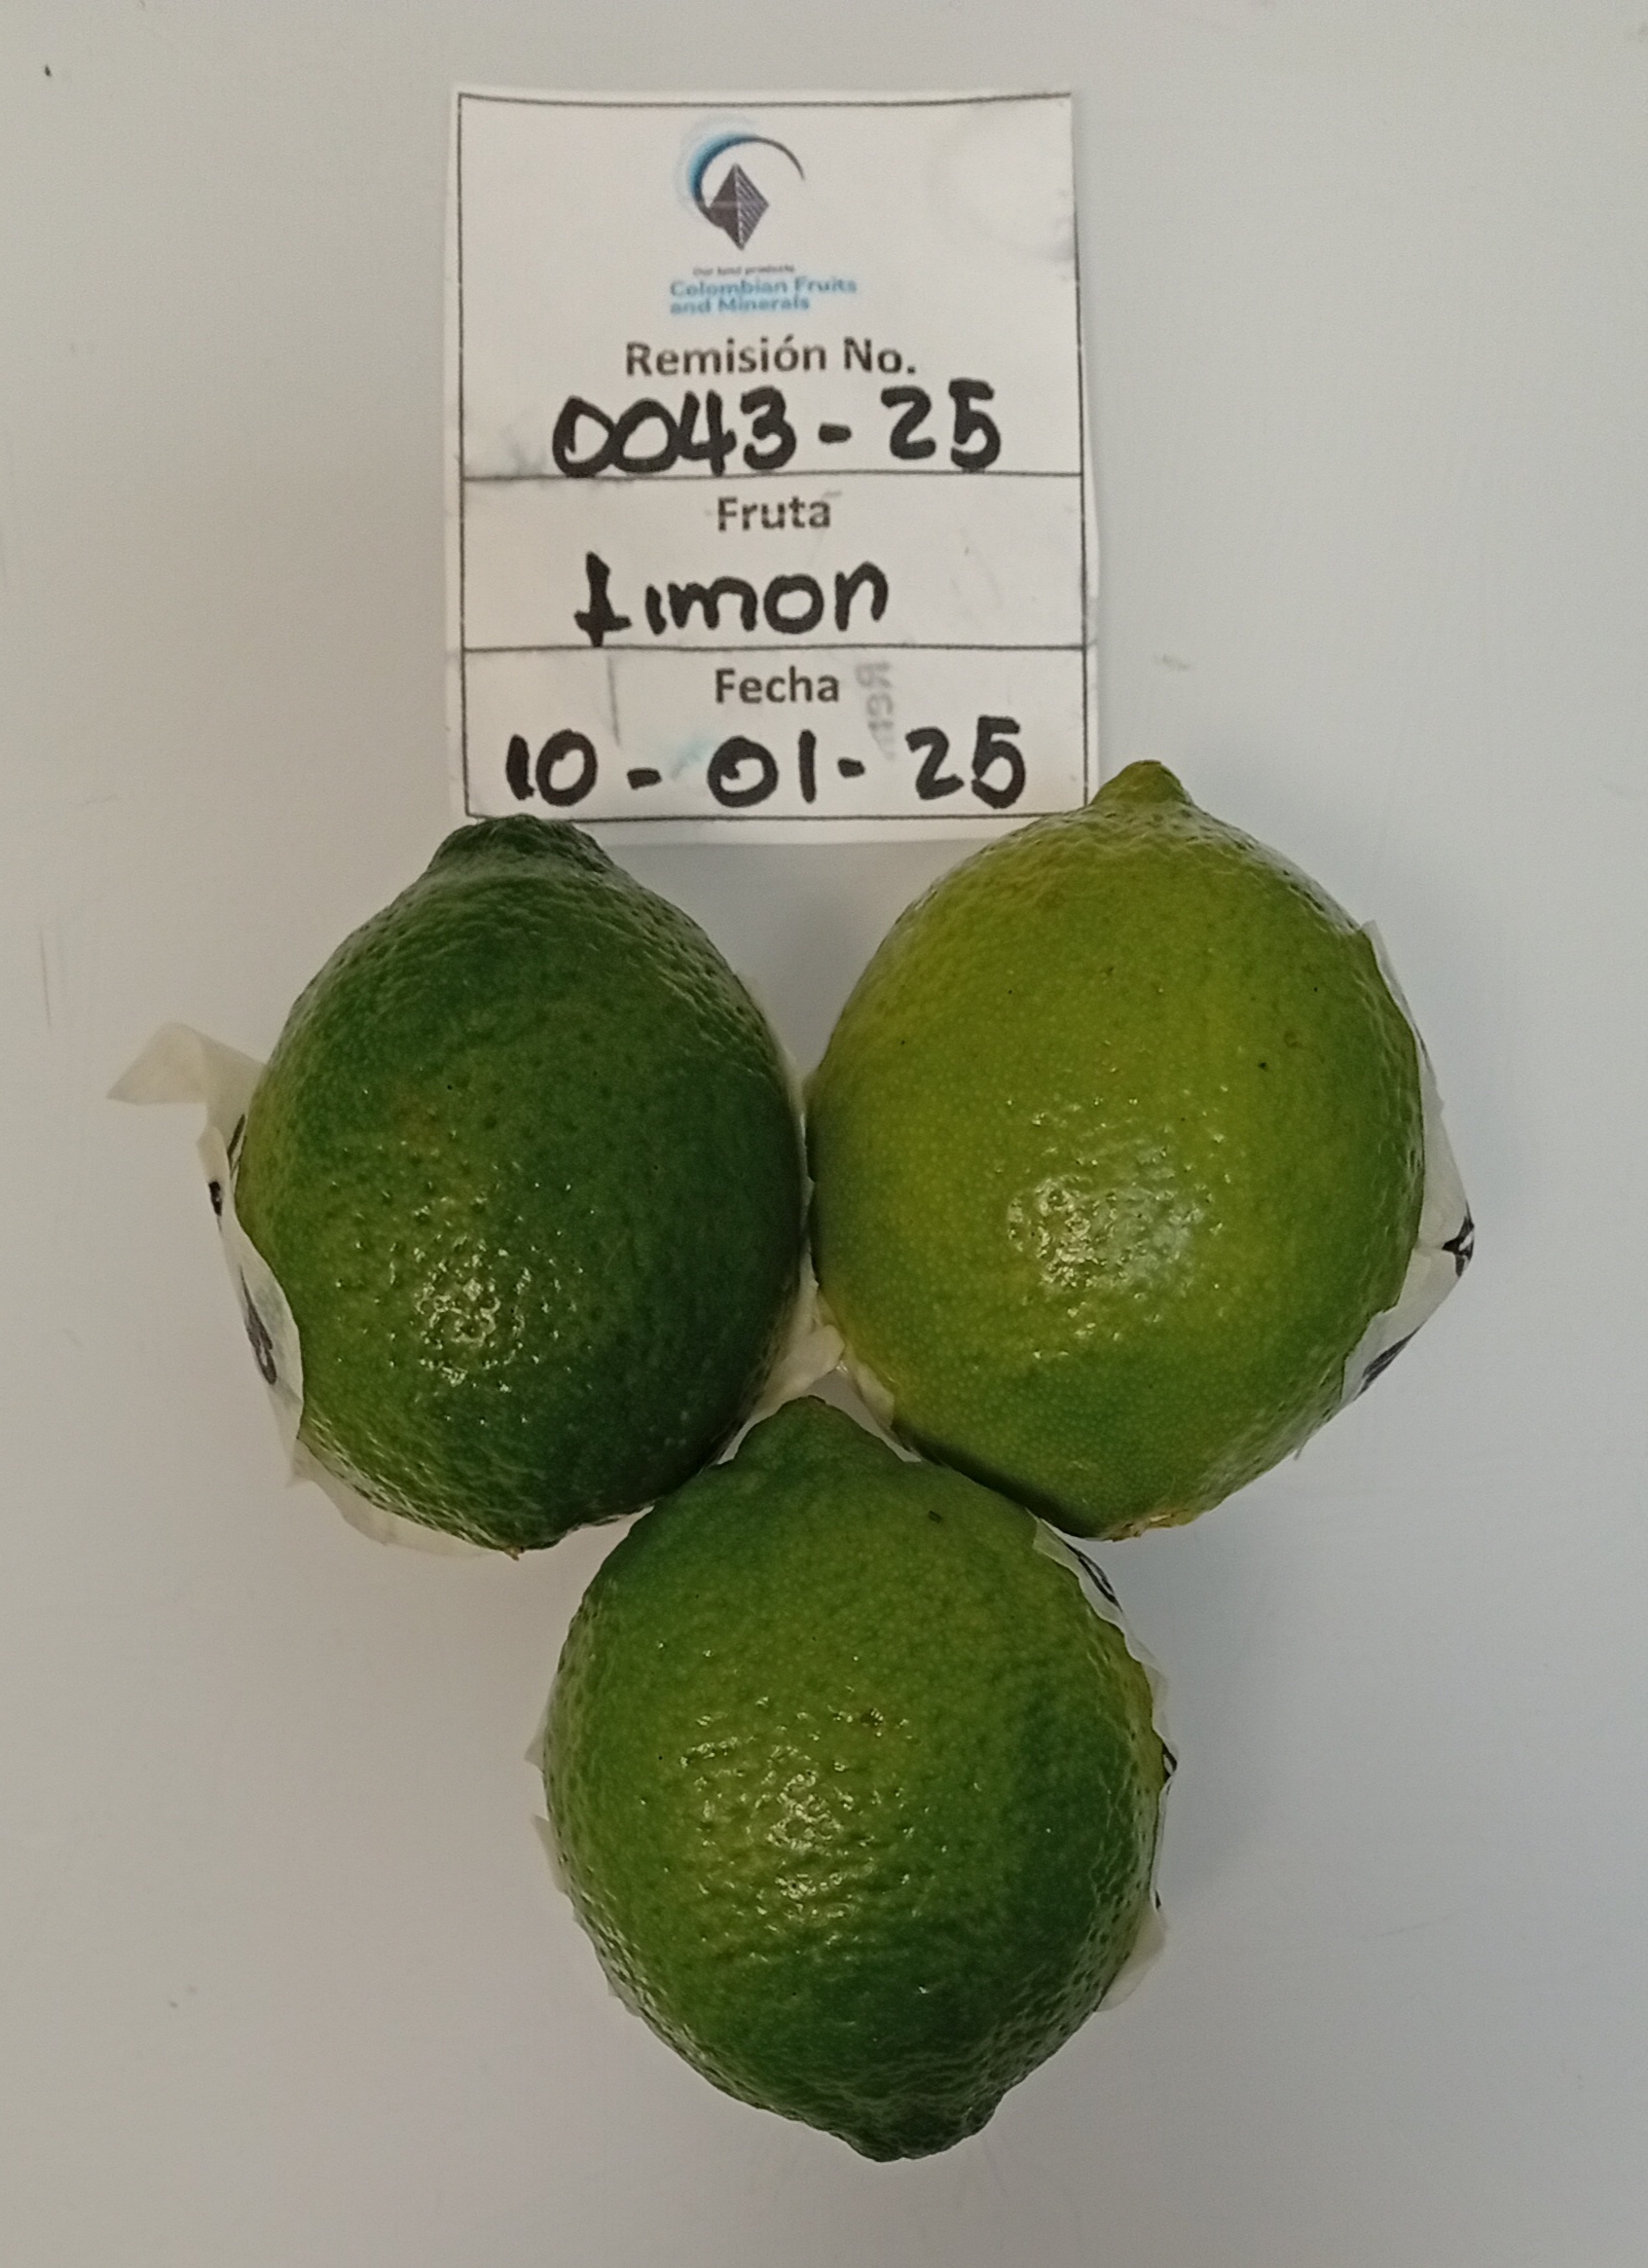 Our land products
Colombian Fruits
and Minerals
Remisión No.
0043-25
Fruta
Limon
Fecha
10-01-25